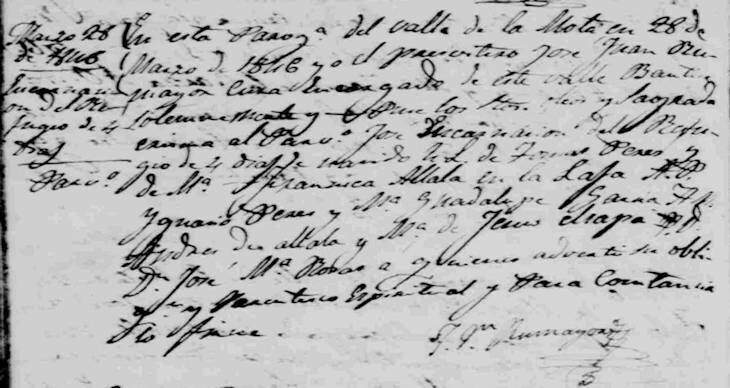 Marzo 28
de 1846
Encarnaci
on del Re
fugio de 4
dias
Parv.º
En esta Parroq.ª del valle de la Mota en 28 de
Marzo de 1846 yo el presvitero José Juan Ru
mayor Cura Encargado de este valle Bautise
solemnemente y puse los Stos. oleos y Sagrado
crisma al Parv.º José Encarnacion del Refu
gio de 4 dias de nacido h. L. de Tomas Peres y
de M.ª Fransisca Allala en la Lasa A. P.
Ygnacio Peres y M.ª Guadalupe Garsa A. M.
Andres de allala y M.ª de Jesus chapa P. P.
Dn José M.ª Rosas a quienes adverti su obli
g.n y Parentesco Espiritual y Para Constancia
lo firme.
J. Jn. Rumayor